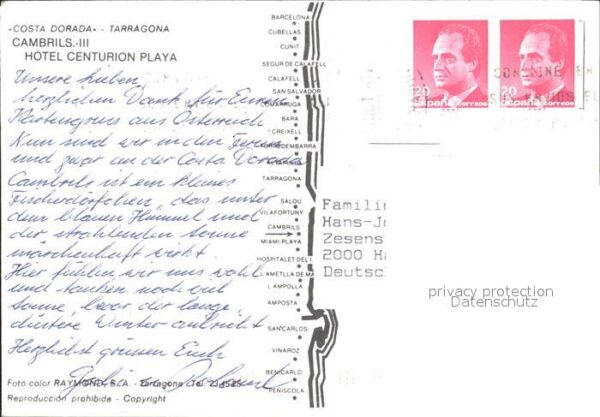 «COSTA DORADA» - TARRAGONA
CAMBRILS.-III
HOTEL CENTURION PLAYA
Unsere Lieben,
herzlichen Dank für Euren
Kartengruss aus Österreich
Nun sind wir in den Ferien
und zwar an der Costa Dorada
Cambrils ist ein kleines
Fischerdörfchen, das unter
dem blauen Himmel und
der strahlenden Sonne
märchenhaft wirkt.
Hier fühlen wir uns wohl
und tanken noch viel
Sonne, bevor der lange,
düstere Winter anbricht
Herzlichst grüssen Euch
Foto color RAYMOND, S. A. - Tarragona Tel.
Reproducción prohibida - Copyright
BARCELONA
CUBELLAS
CUNIT
SEGUR DE CALAFELL
CALAFELL
SAN SALVADOR
BARA
CREIXELL
TARRAGONA
SALOU
VILAFORTUNY
CAMBRILS
MIAMI PLAYA
HOSPITALET DEL I.
AMETLLA DE MA
AMPOLLA
AMPOSTA
SAN CARLOS
VINAROZ
BENICARLO
PEÑISCOLA
20 20
españa CORREOS españa CORREOS
Famili
Hans-Jo
Zesens
2000 Ha
Deutsc
privacy protection
Datenschutz